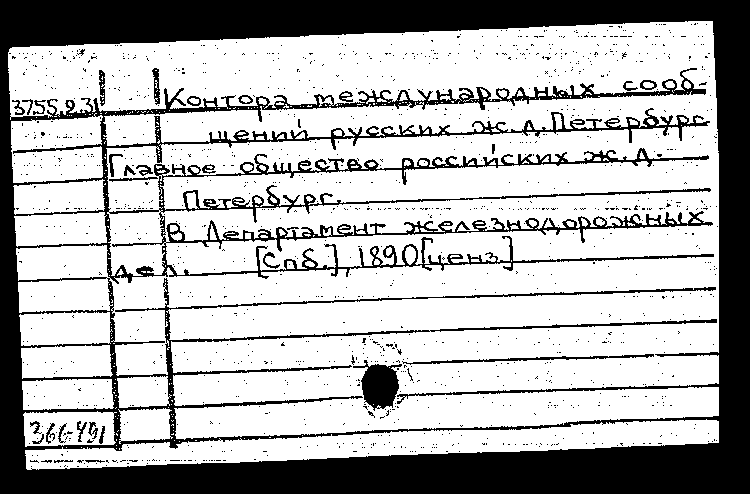 3755.2.31 Контора международных сооб-
щений русских ж.д. Петербург
Главное общество российских ж.д.
Петербург.
В Департамент железнодорожных
дел. [Спб.], 1890 [ценз.]
366-491